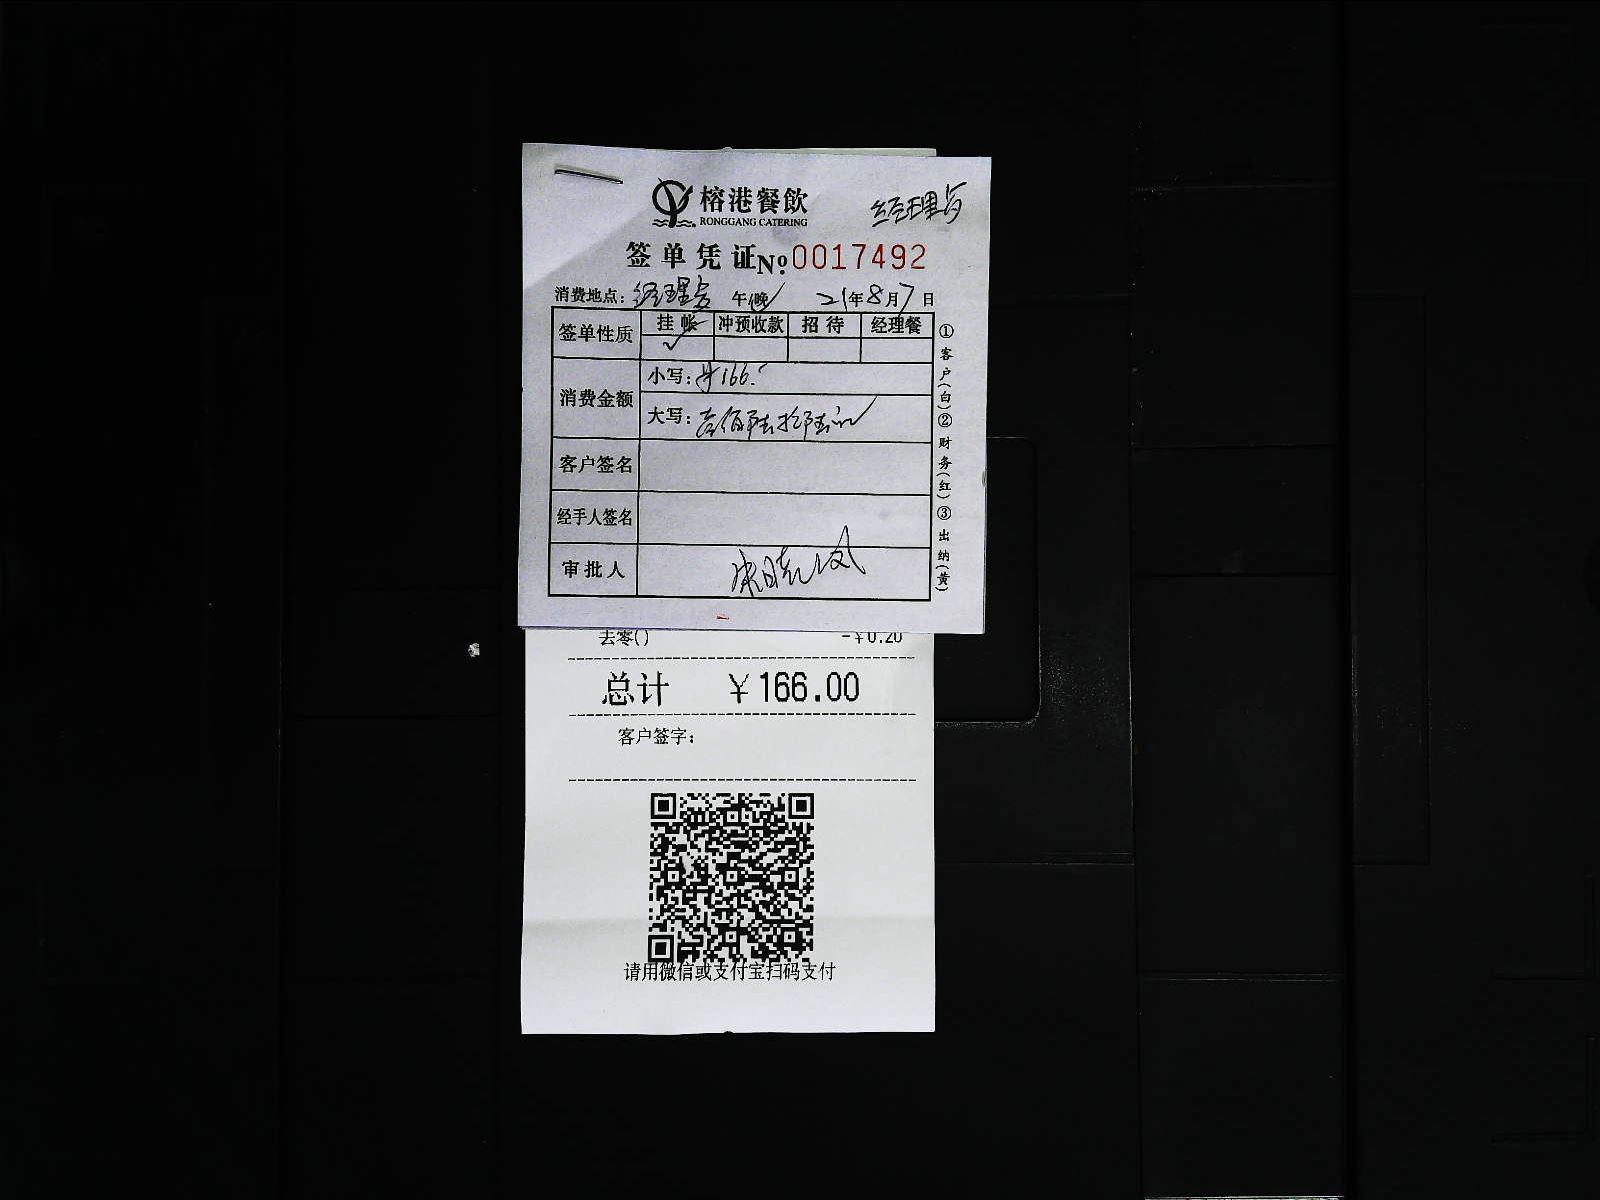 榕港餐飲
RONGGANG CATERING
经理
签单凭证 No 0017492
消费地点: 经理 午晚 21年8月7日
签单性质 挂帐 冲预收款 招待 经理餐
✓
消费金额 小写: ¥166.
大写: 壹佰陆拾陆元
客户签名
经手人签名
审批人
①客户(白)②财务(红)③出纳(黄)
去零() -￥0.20
总计 ￥166.00
客户签字:
请用微信或支付宝扫码支付